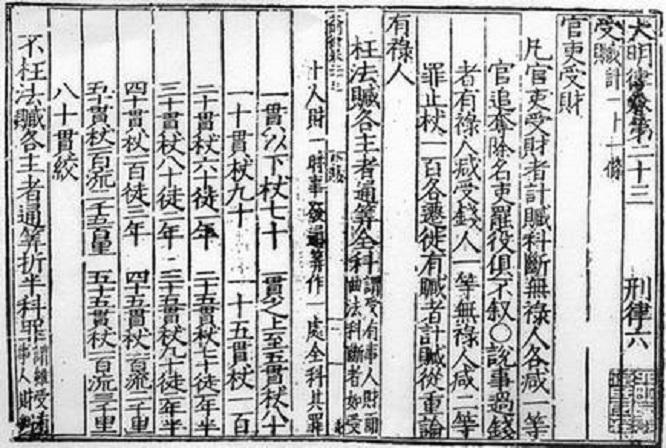 大明律卷第二十三 刑律六
受贓計一十一條
官吏受財
凡官吏受財者計贓科斷無祿人各减一等
官追奪除名吏罷役俱不叙○說事過錢
者有祿人减受錢人一等無祿人减二等
罪止杖一百各遷徙有贓者計贓從重論
有祿人
枉法贓各主者通筭全科 謂受有事人財而曲法科斷者如受
十人財一時事發通筭作一處全科其罪
一貫以下杖七十 一貫之上至五貫杖八十
一十貫杖九十 一十五貫杖一百
二十貫杖六十徒一年 二十五貫杖七十徒一年半
三十貫杖八十徒二年 三十五貫杖九十徒二年半
四十貫杖一百徒三年 四十五貫杖一百流二千里
五十貫杖一百流二千五百里 五十五貫杖一百流三千里
八十貫絞
不枉法贓各主者通筭折半科罪 謂雖受有事人財